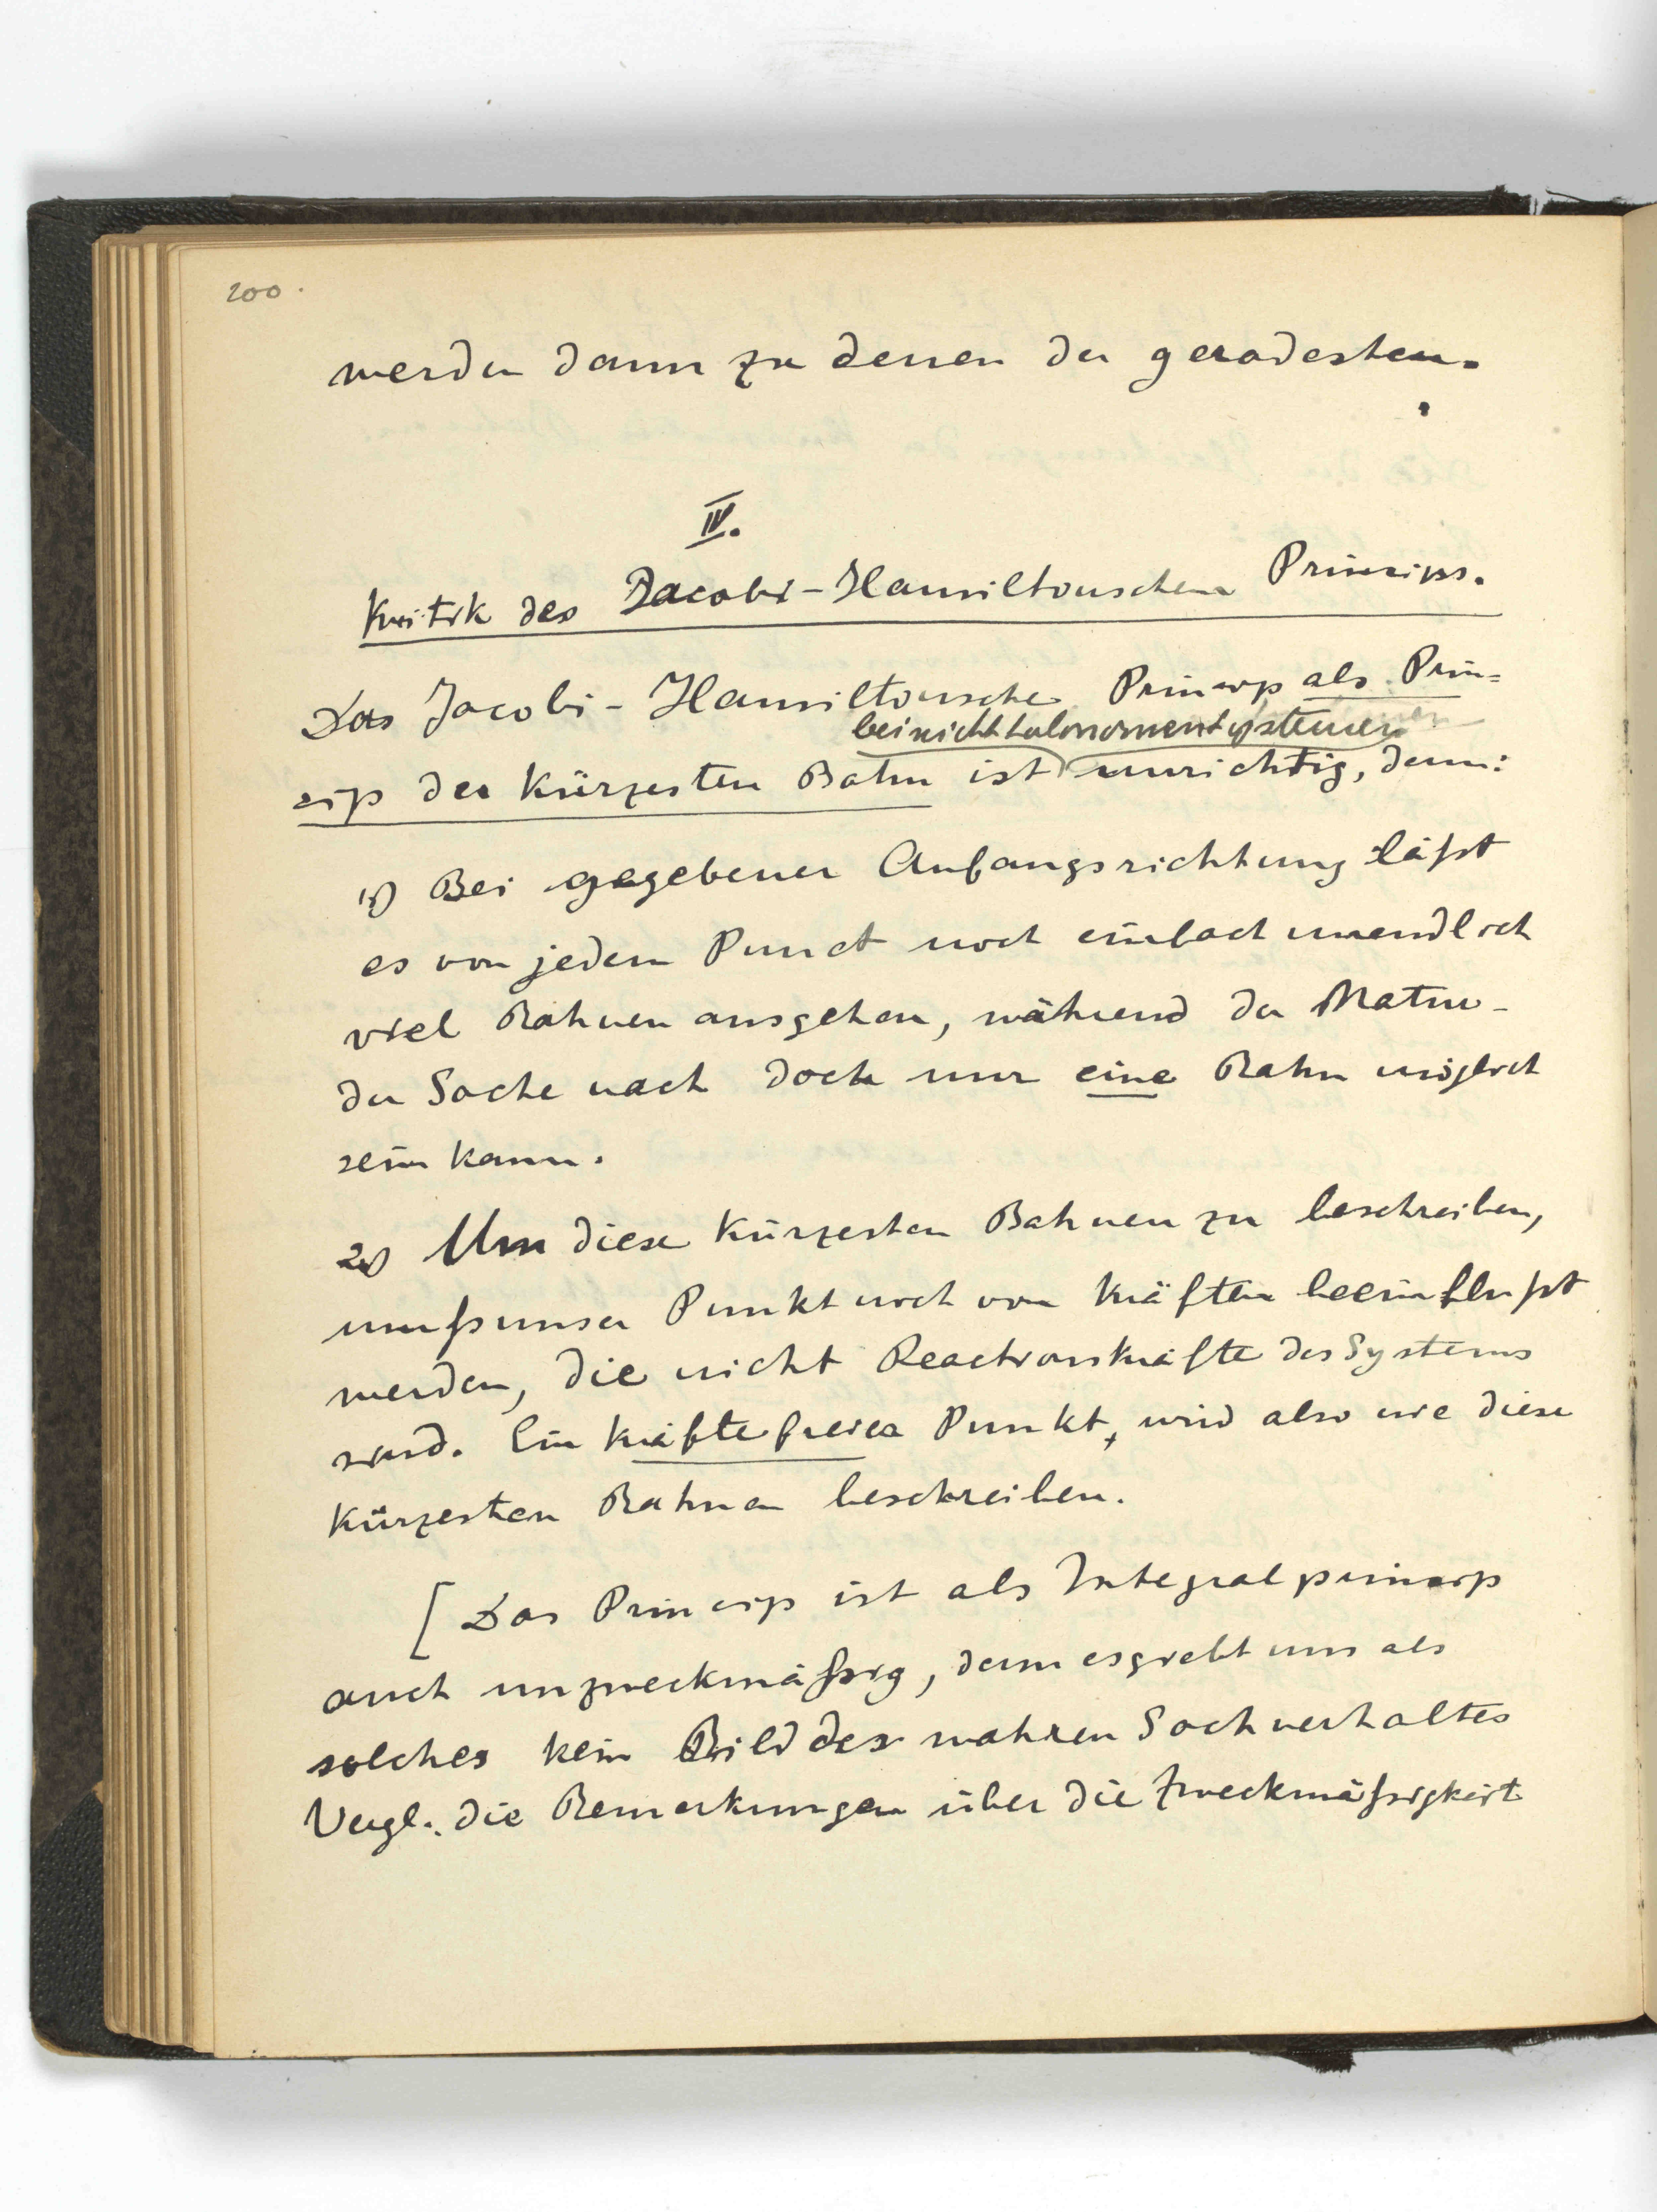 200.
werden dann zu denen der geradesten.
IV.
Kritik des Jacobi-Hamiltonschen Princips.
Das Jacobi-Hamiltonsche Princip als Prin=
bei nicht holonomen Systemen
cip der kürzesten Bahn ist unrichtig, denn:
1) Bei gegebener Anfangsrichtung läßt
es von jedem Punct noch einfach unendlich
viel Bahnen ausgehen, während der Natur-
der Sache nach doch nur eine Bahn möglich
sein kann.
2) Um diese kürzesten Bahnen zu beschreiben,
muß unser Punkt noch von Kräften beeinflußt
werden, die nicht Reactionskräfte des Systems
sind. Ein kräftefreier Punkt, wird also nie diese
kürzesten Bahnen beschreiben.
[Das Princip ist als Integralprincip
auch unzweckmäßig, denn es giebt uns als
solches kein Bild des wahren Sachverhaltes
Vergl. die Bemerkungen über die Zweckmäßigkeit